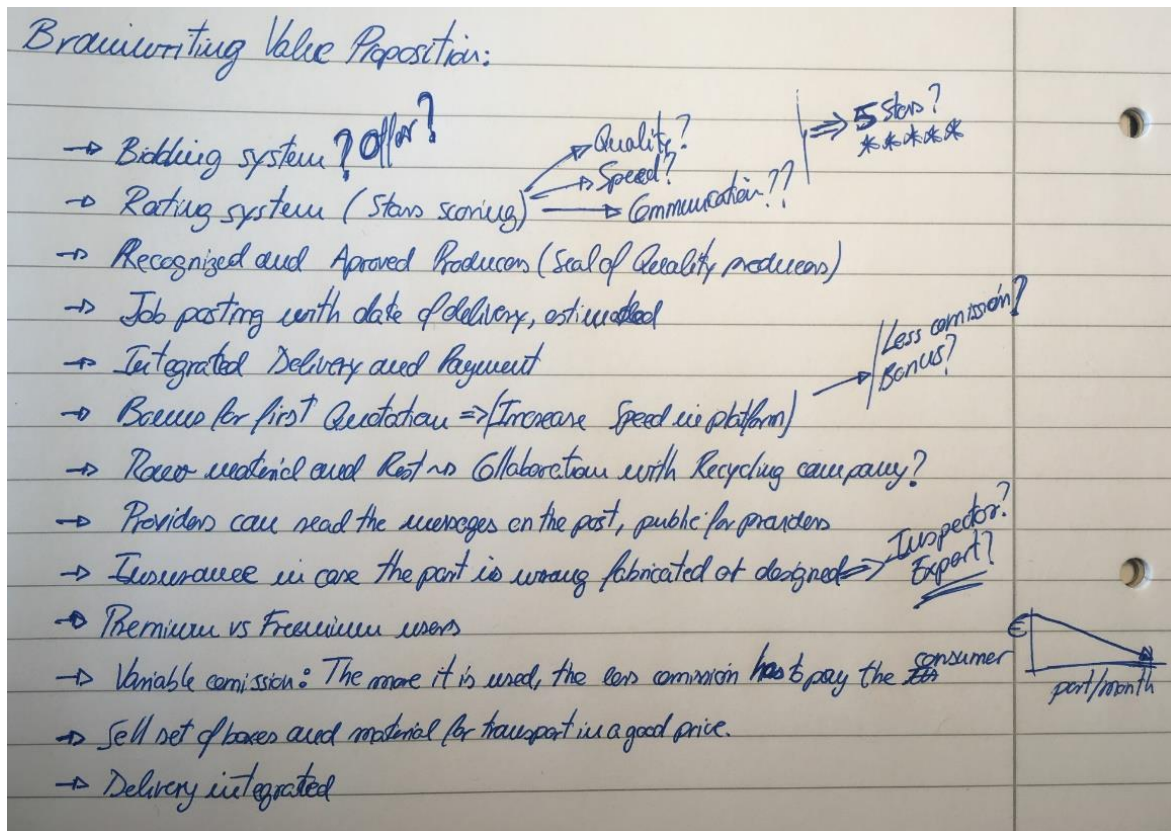 Brainwriting Value Proposition:
→ Bidding system ? Offer?
→ Rating system (Stars scoring) → Quality?
→ Speed?
→ Communication??
⇒ 5 Stars?
*****
→ Recognized and Aproved Producers (Seal of Quality producers)
→ Job posting with date of delivery, estimated
→ Integrated Delivery and Payment
→ Bonus for first Quotation => (Increase Speed in platform) →
Less comission?
Bonus?
→ Raw material and Rest → Collaboration with Recycling company?
→ Providers can read the messages on the post, public for providers
→ Insurance in case the part is wrong fabricated or designed =>
Inspector?
Expert?
→ Premium vs Freemium users
→ Variable comission: The more it is used, the less comission has to pay the consumer
€
part/month
→ Sell set of boxes and material for transport in a good price.
→ Delivery integrated